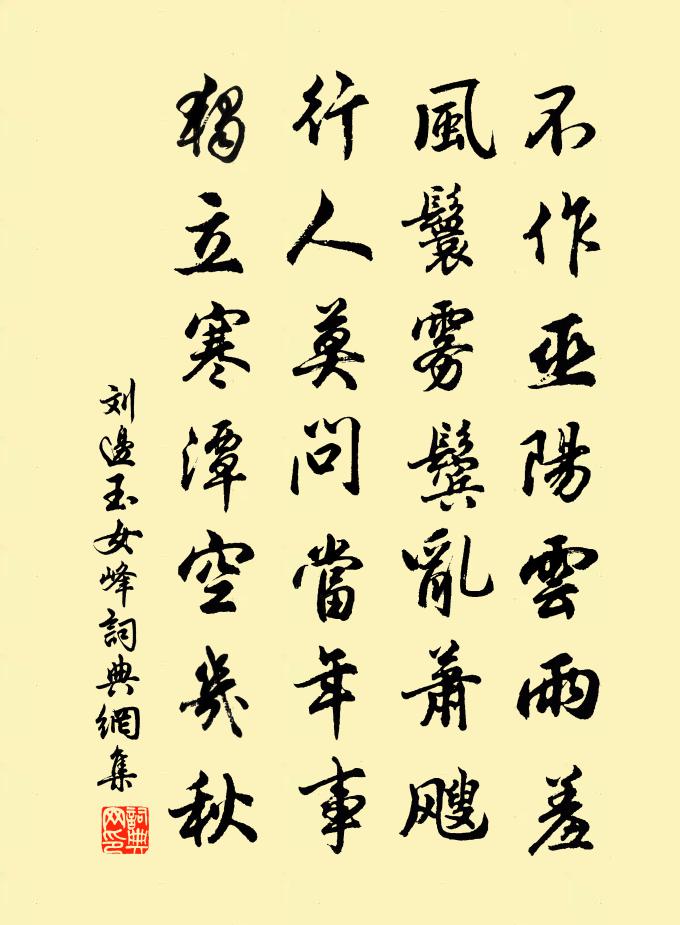 不作巫陽雲雨羞
風鬟雾鬓亂蕭颼
行人莫問當年事
獨立寒潭空幾秋
刘邊玉女峰詞典網集
詞典網印